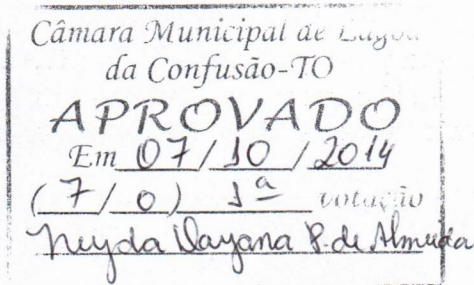 Câmara Municipal de Lagoa
da Confusão-TO
APROVADO
Em 07/10/2014
(7/0) 1ª votação
Neyda Dayana P. de Almeida